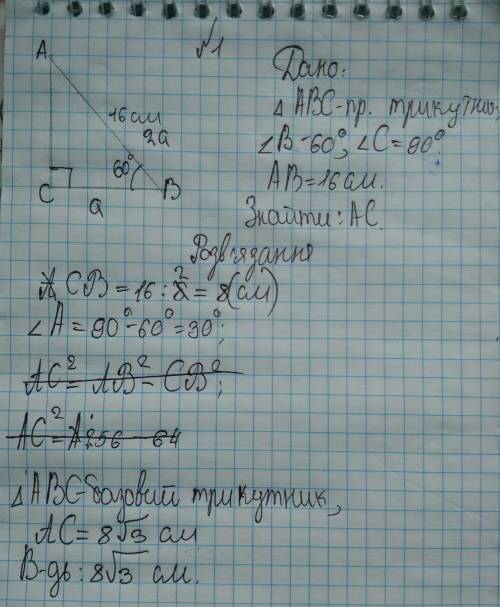 №1
A
16 см
2a
60°
C
B
a
Дано:
△ ABC - пр. трикутник;
∠B - 60°; ∠C = 90°.
AB = 16 см.
Знайти: AC.
Розв'язання
CB = 16 : 2 = 8 (см)
∠A = 90° - 60° = 30°;
AC² = AB² - CB²;
AC² = 256 - 64
△ABC - базовий трикутник,
AC = 8√3 см
В-дь: 8√3 см.